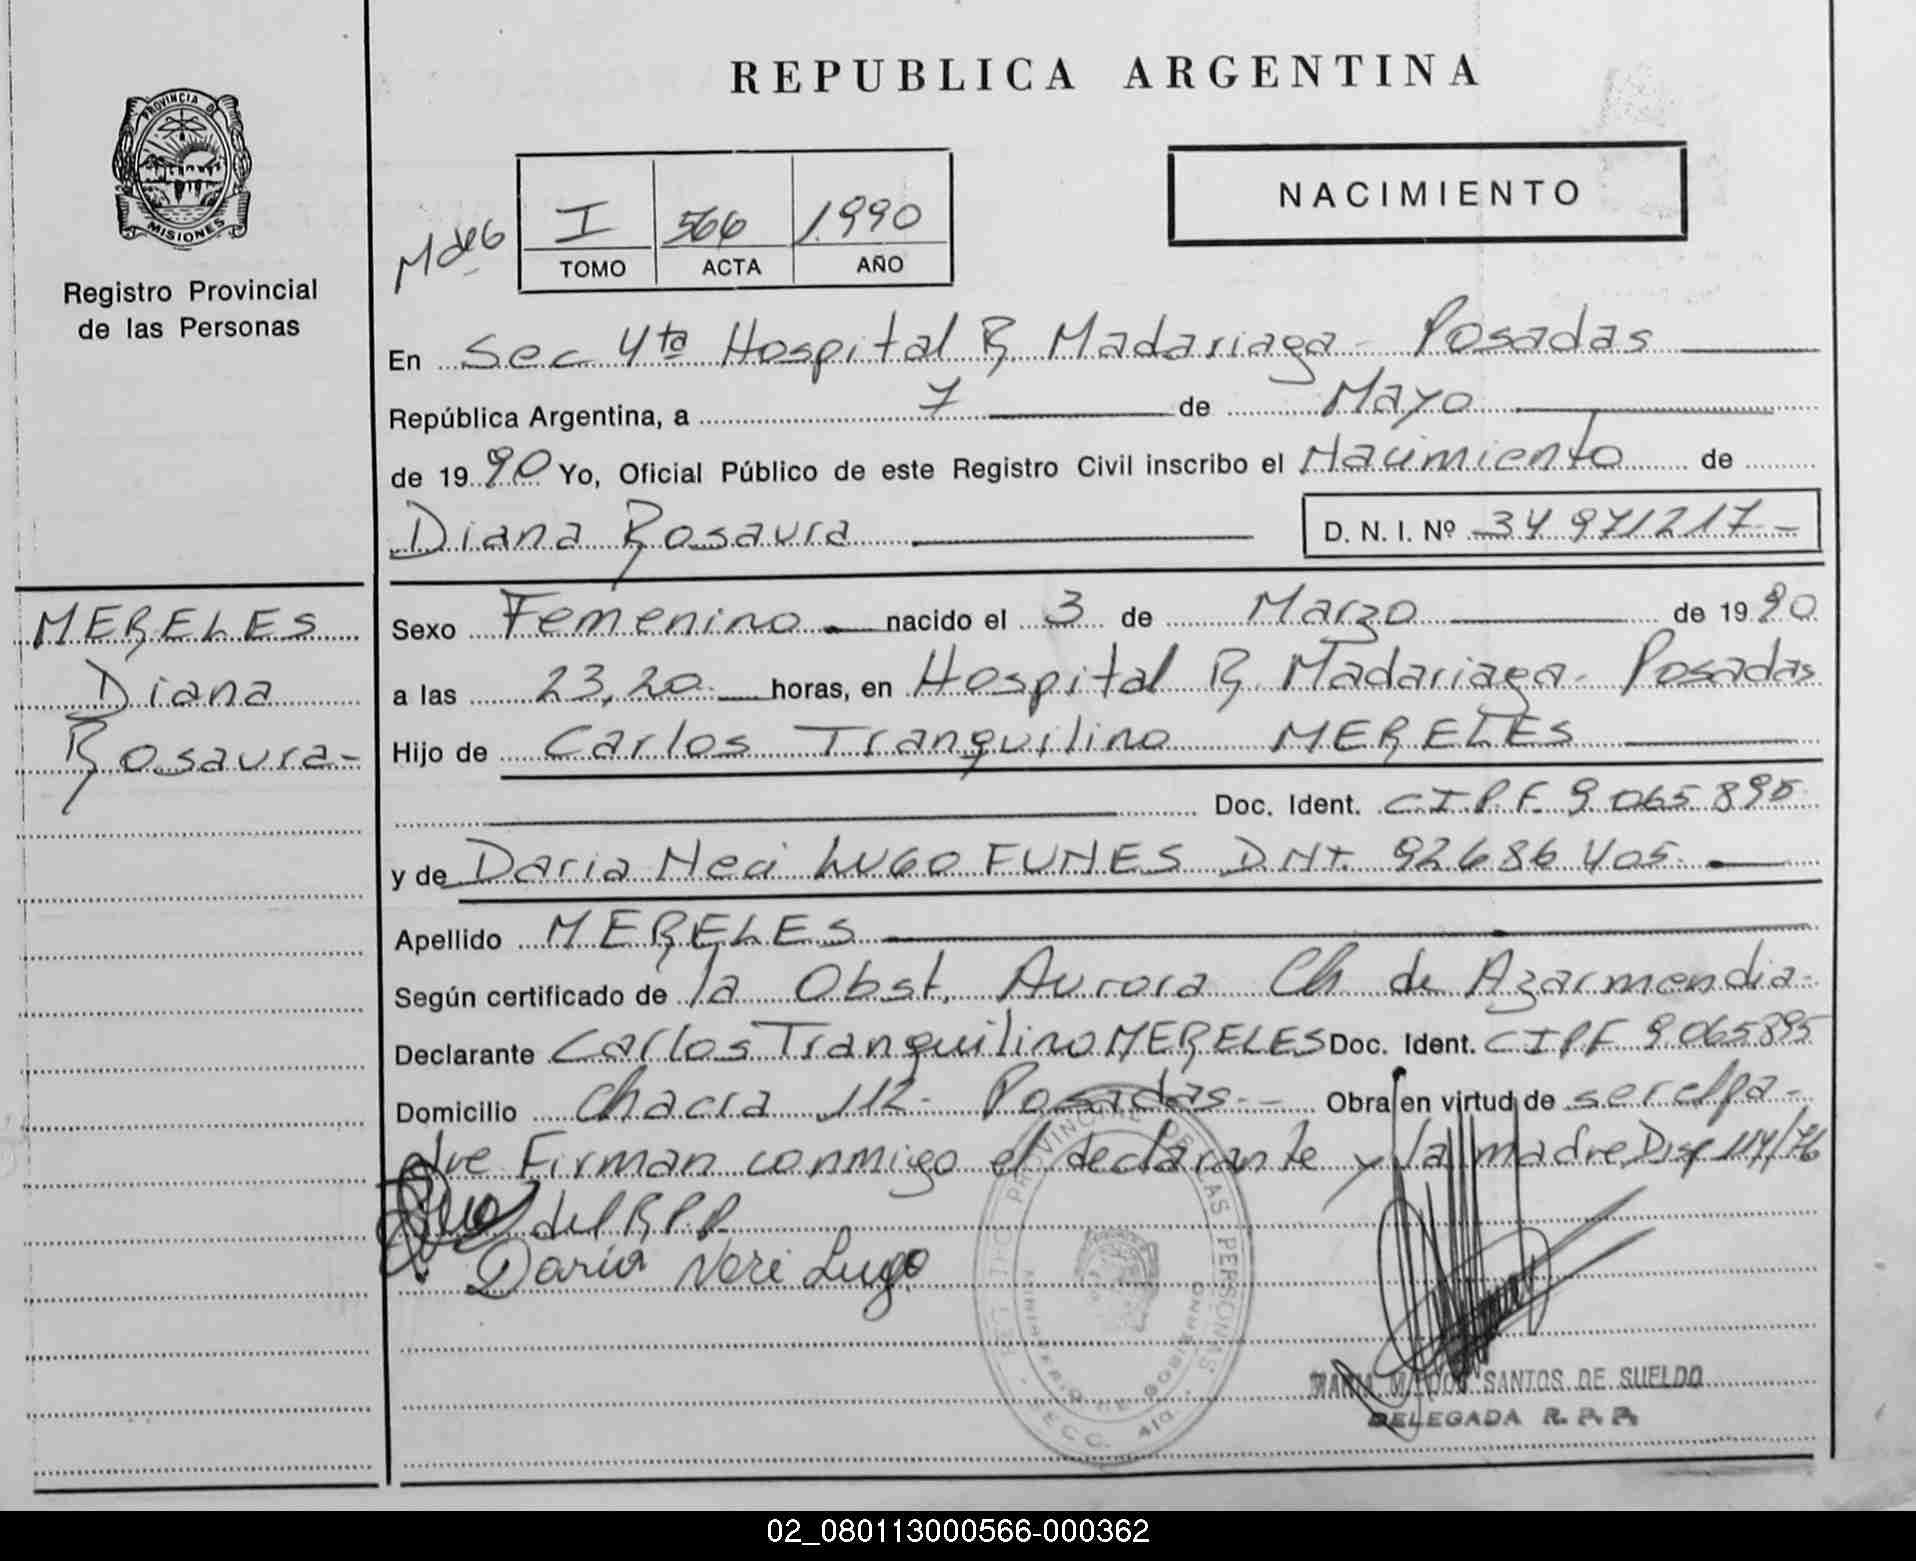 REPUBLICA ARGENTINA
PROVINCIA D
MISIONES
Registro Provincial
de las Personas
NACIMIENTO
M de G
I 566 1.990
TOMO ACTA AÑO
En Sec 4ta Hospital R. Madariaga - Posadas
República Argentina, a 7 de Mayo
de 1990 Yo, Oficial Público de este Registro Civil inscribo el Nacimiento de
Diana Rosaura D. N. I. Nº 34 971217-
MERELES
Diana
Rosaura-
Sexo Femenino nacido el 3 de Marzo de 1990
a las 23,20 horas, en Hospital R. Madariaga - Posadas
Hijo de Carlos Tranquilino MERELES
Doc. Ident. CIPF 9 065 895
y de Daria Neri LUGO FUNES DNI. 92686405
Apellido MERELES
Según certificado de la Obst. Aurora Ch de Azarmendia-
Declarante Carlos Tranquilino MERELES Doc. Ident. CIPF 9.065895
Domicilio Chacra 112 - Posadas - Obra en virtud de ser el pa-
dre Firman conmigo el declarante y la madre Disp 114/76
del R.P.P.
Daria Neri Lugo
PROVINCIAL DE LAS PERSONAS
MINISTERIO DE GOBIERNO
SECC. 4ta
MARIA SANTOS DE SUELDO
DELEGADA R. P. P.
02_080113000566-000362